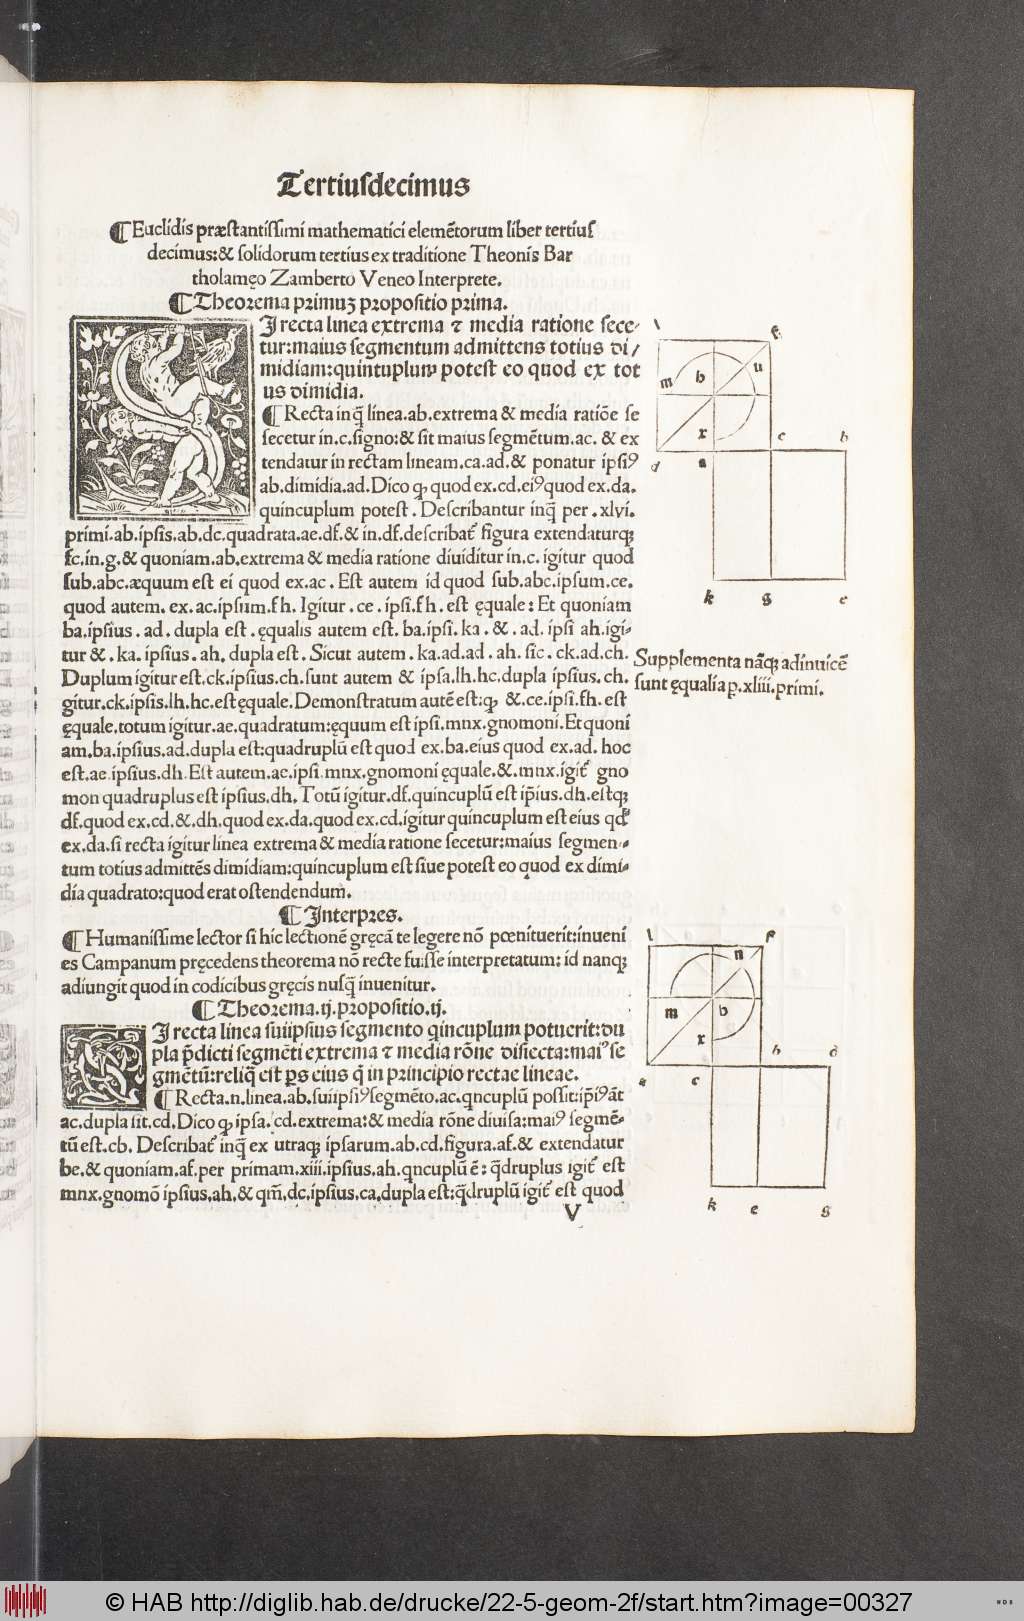 Tertiusdecimus
¶Euclidis præstantissimi mathematici elemẽtorum liber tertius
decimus:& solidorum tertius ex traditione Theonis Bar
tholamęo Zamberto Veneo Interprete.
¶Theorema primuꝫ propositio prima.
SI recta linea extrema ⁊ media ratione sece-
tur:maius segmentum admittens totius di/
midiam:quintuplum potest eo quod ex tot
us dimidia.
¶Recta inq̃ linea.ab.extrema & media ratiõe se
secetur in.c.signo:& sit maius segmẽtum.ac. & ex
tendatur in rectam lineam.ca.ad.& ponatur ipsiꝰ
ab.dimidia.ad.Dico ꝙ quod ex.cd.eiꝰquod ex.da.
quincuplum potest. Describantur inq̃ per .xlvi.
primi.ab.ipsis.ab.dc.quadrata.ae.df.& in.df.describat̃ figura extendaturqꝫ
fc.in.g.& quoniam.ab.extrema & media ratione diuiditur in.c. igitur quod
sub.abc.æquum est ei quod ex.ac. Est autem id quod sub.abc.ipsum.ce.
quod autem. ex.ac.ipsum.fh. Igitur .ce .ipsi.fh. est ęquale: Et quoniam
ba.ipsius .ad. dupla est .ęqualis autem est. ba.ipsi. ka .& .ad. ipsi ah.igi-
tur &. ka. ipsius .ah. dupla est. Sicut autem .ka.ad.ad .ah. sic .ck.ad.ch.
Duplum igitur est.ck.ipsius.ch.sunt autem & ipsa.lh.hc.dupla ipsius.ch.
gitur.ck.ipsis.lh.hc.est ęquale.Demonstratum autẽ est:ꝙ &.ce.ipsi.fh.est
ęquale.totum igitur.ae.quadratum:ęquum est ipsi.mnx.gnomoni.Et quoni
am.ba.ipsius.ad.dupla est:quadruplũ est quod ex.ba.eius quod ex.ad. hoc
est.ae.ipsius.dh. Est autem.ae.ipsi.mnx.gnomoni ęquale.&.mnx.igit̃ gno
mon quadruplus est ipsius.dh. Totũ igitur.df.quincuplũ est ip̃ius.dh.estqꝫ
df.quod ex.cd.&.dh.quod ex.da.quod ex.cd.igitur quincuplum est eius qd̃
ex.da.si recta igitur linea extrema & media ratione secetur:maius segmen-
tum totius admittẽs dimidiam:quincuplum est siue potest eo quod ex dimi-
dia quadrato:quod erat ostendendum.
¶Interpres.
¶Humanissime lector si hic lectionẽ gręcã te legere nõ pœnituerit:inueni
es Campanum pręcedens theorema nõ recte fuisse interpretatum: id nanqꝫ
adiungit quod in codicibus gręcis nusq̃ inuenitur.
¶Theorema.ij.propositio.ij.
SI recta linea suiipsius segmento qincuplum potuerit:du
pla p̃dicti segmẽti extrema ⁊ media rõne disiecta:maiꝰ se
gmẽtũ:reliq̃ est ps eius q̃ in principio rectae lineae.
¶Recta.n.linea.ab.suiipsiꝰsegmẽto.ac.qncuplũ possit:ip̃iꝰãt
ac.dupla sit.cd.Dico ꝙ ipsa.cd.extrema:& media rõne diuisa:maiꝰ segmẽ-
tũ est.cb. Describat̃ inq̃ ex utraqꝫ ipsarum.ab.cd.figura.af.& extendatur
be.& quoniam.af.per primam.xiii.ipsius.ah.qncuplũ ẽ: q̃druplus igit̃ est
mnx.gnomõ ipsius.ah.& qm̃.dc.ipsius.ca.dupla est:q̃druplũ igit̃ est quod
V
l f
m b n
x c h
d a
k g e
Supplementa nãqꝫ adinuicẽ
sunt ęqualia p.xliii.primi.
l f
n
m b
x h d
a c
k e g
© HAB http://diglib.hab.de/drucke/22-5-geom-2f/start.htm?image=00327